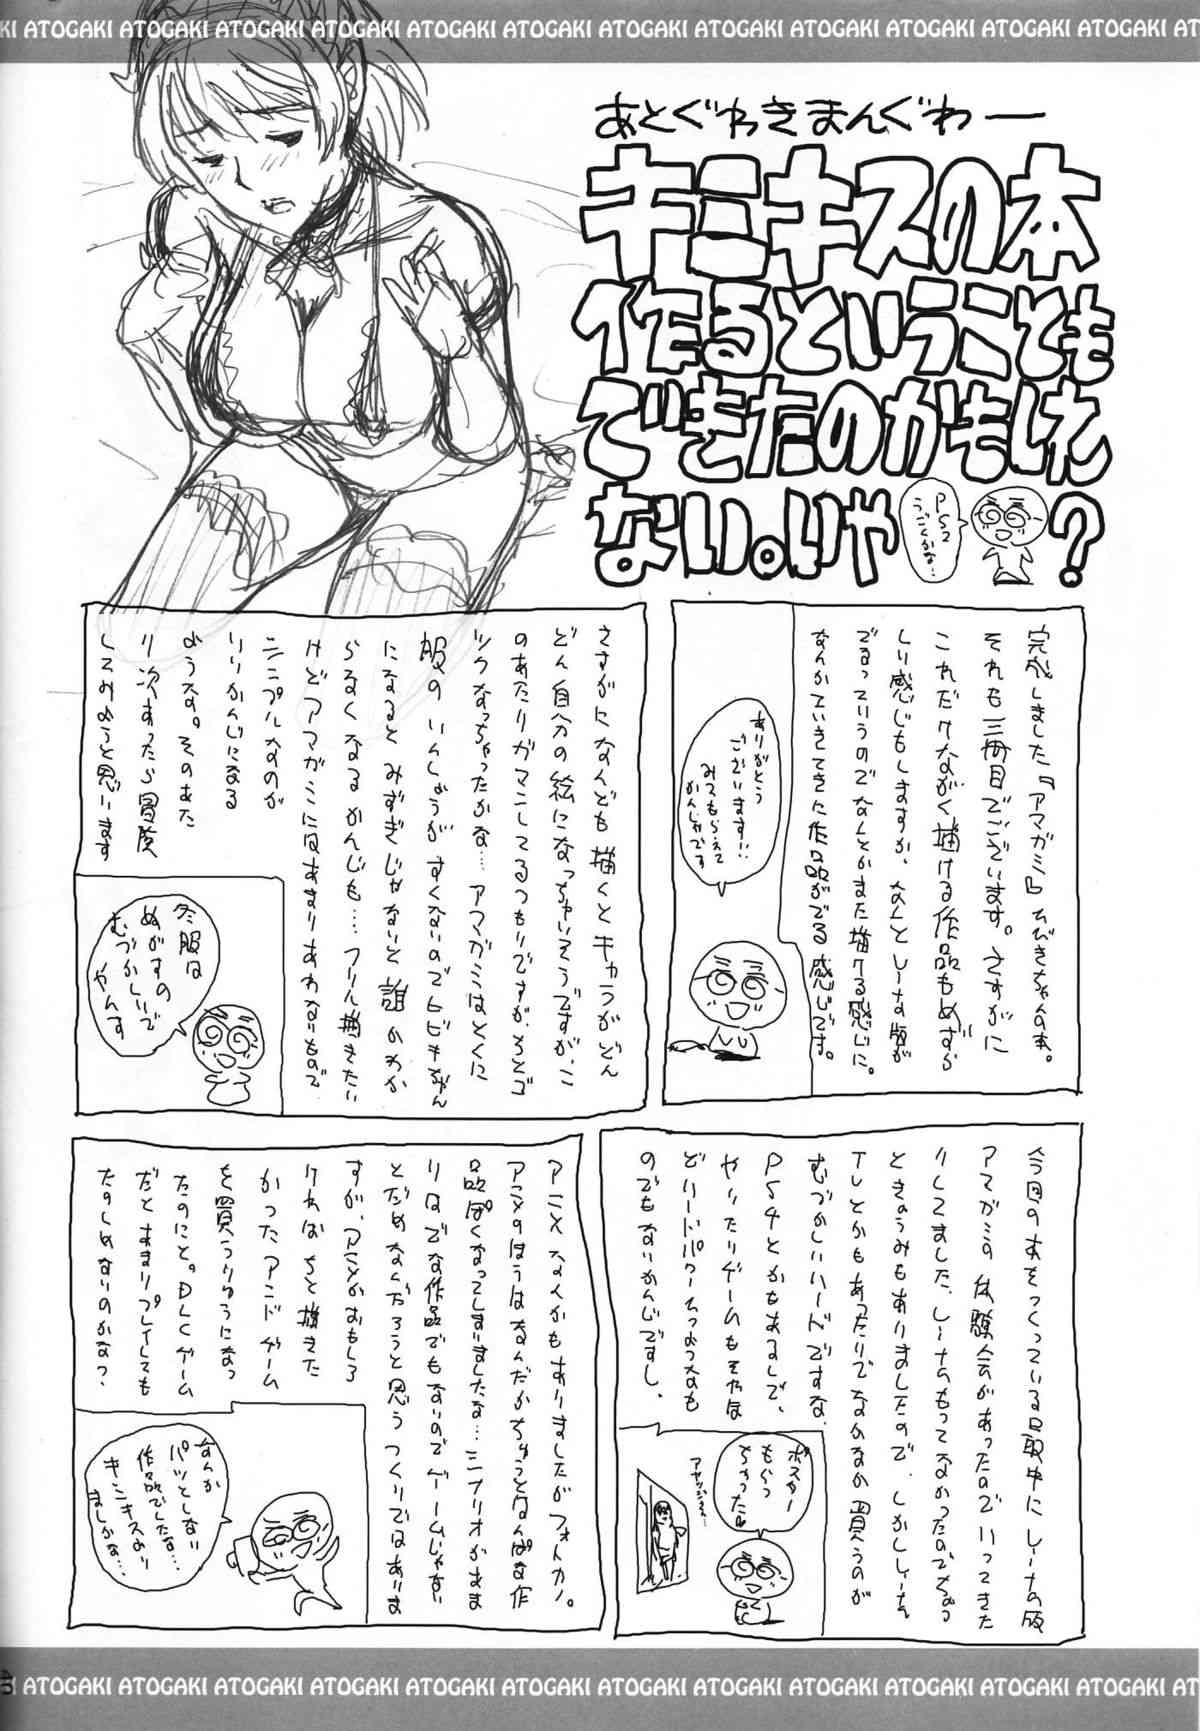 ATOGAKI ATOGAKI ATOGAKI ATOGAKI ATOGAKI ATOGAKI ATOGAKI ATOGAKI ATOGAKI ATOGAKI ATOGAKI
あとぐわきまんぐわー
キミキスの本
作るということも
できたのかもしれ
ない。いや?
PS2
うごくかな…
完成しました『アマガミ』ひびきちゃん本。
それも三冊目でございます。さすがに
これだけながく描ける作品もめずら
しい感じもしますが、なんとしーな版が
でるっていうのでなんとかまた描ける感じに。
なんかていきてきた作品がでる感じです。
ありがとう
ございます!!
みてもらえて
かんしゃです
さすがになんども描くとキャラがどん
どん自分の絵になっちゃいそうですが、こ
のあたりガマンしてるつもりですが、ちとゴ
ツクなっちゃったかな…アマガミはとくに
服のいんしょうがすくないのでヒビキちゃん
になるとみずぎじゃないと誰かわか
らなくなるかんじも…フリル描きたい
けどアマガミにはあまりあわないもので
シンプルなのが
いいかんじになる
ような。そのあた
り次あったら冒険
してみようと思います
冬服は
ぬがすの
むづかしいで
やんす
今回のあとつくっている最中にしーナの版
アマガミの体験会があったのでいってきた
りしてました、しーナもってなかったのでちょっ
ときょうみもありましたので、しかししーナ
TVとかもあったりでなかなか買うのが
むづかしいハードですな、
PS4とかもあるしで、
やりたいゲームもそやな
どハードパワーちっょっなも
のでもないかんじですし。
ポスター
もらっ
ちゃった
アニメなんかもありましたがフォトカノ。
アニメのほうはなんだかちゅうとはんぱな作
品ぽくなってしまいましたな…シナリオがあま
りはでな作品でもないのでゲームじゃない
とだめなんだろうと思うつくりではありま
すが、アニメがおもしろ
ければちと描きた
かったアンドゲーム
を買うりゆうになっ
たのにと。DLCゲーム
だとあまりプレイしても
たのしめないのかなっ、
なんか
パッとしない
作品でしたな…
キミキスより
ましかな…
ATOGAKI ATOGAKI ATOGAKI ATOGAKI ATOGAKI ATOGAKI ATOGAKI ATOGAKI ATOGAKI ATOGAKI ATOGAKI